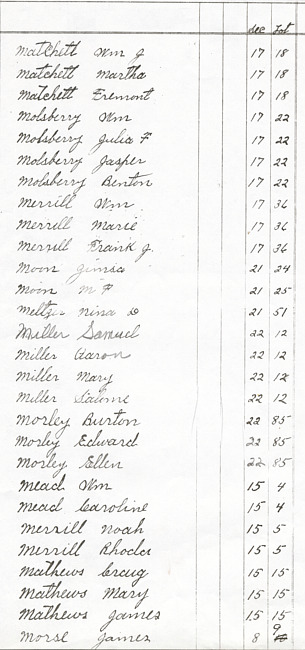 Sec Lot
Matchett Wm J 17 18
Matchett Martha 17 18
Matchett Fremont 17 18
Molsberry Wm 17 22
Molsberry Julia F 17 22
Molsberry Jasper 17 22
Molsberry Benton 17 22
Merrill Wm 17 36
Merrill Marie 17 36
Merrill Frank J. 17 36
Moon 21 24
Moon M F 21 25
Nina D 21 51
Miller Samuel 22 12
Miller Aaron 22 12
Miller Mary 22 12
Miller Salome 22 12
Morley Burton 22 85
Morley Edward 22 85
Morley Ellen 22 85
Mead Wm 15 4
Mead Caroline 15 4
Merrill Noah 15 5
Merrill Rhoda 15 5
Mathews Craug 15 15
Mathews Mary 15 15
Mathews James 15 15
Morse James 8 9